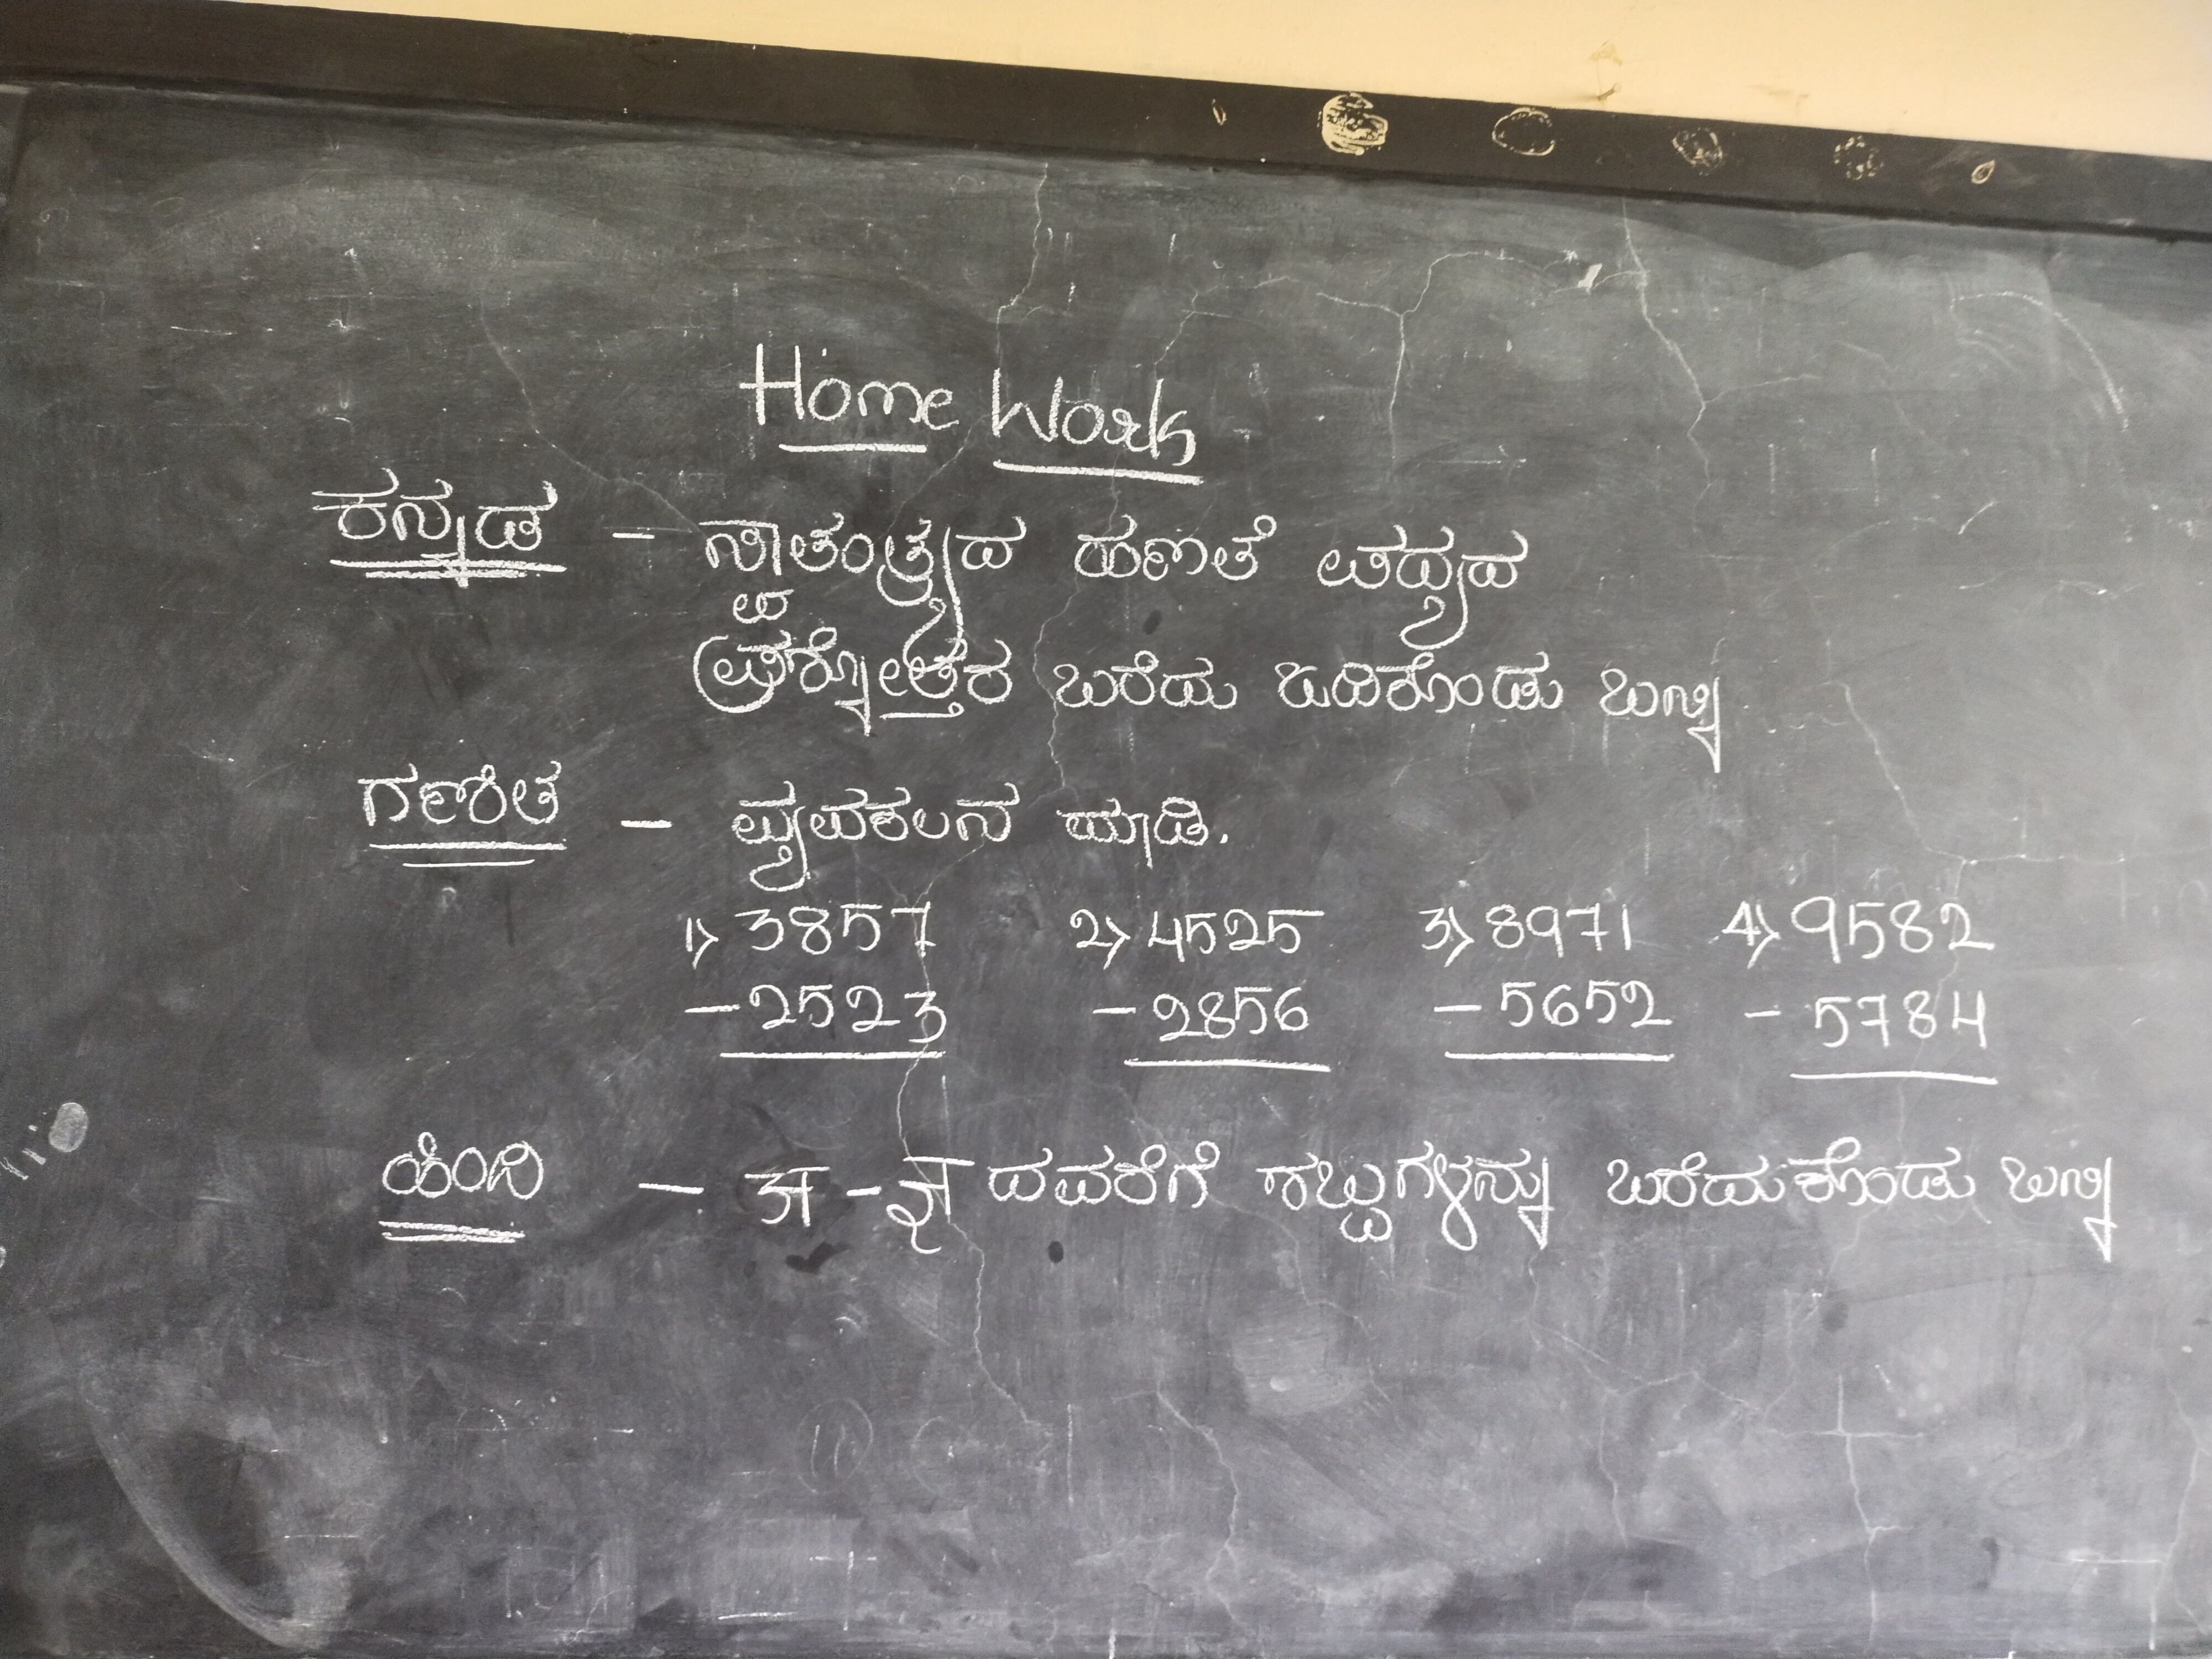 Home Work
ಕನ್ನಡ - ಸ್ವಾತಂತ್ರ್ಯದ ಹಣತೆ ಪದ್ಯದ
ಪ್ರಶ್ನೋತ್ತರ ಬರೆದು ಓದಿಕೊಂಡು ಬನ್ನಿ
ಗಣಿತ - ವ್ಯವಕಲನ ಮಾಡಿ.
1) 3857 2) 4525 3) 8971 4) 9582
- 2523 - 2856 - 5652 - 5784
ಹಿಂದಿ - अ - ज्ञ ದವರೆಗೆ ಶಬ್ಧಗಳನ್ನು ಬರೆದುಕೊಂಡು ಬನ್ನಿ